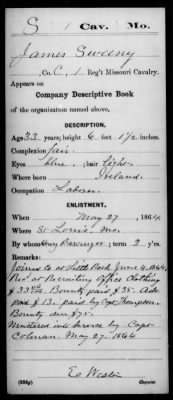 S | 1 | Cav. | Mo.
James Sweeny
, Co. C, 1 Reg't Missouri Cavalry.
Appears on
Company Descriptive Book
of the organization named above.
DESCRIPTION.
Age 33 years; height 6 feet 1½ inches.
Complexion fair.
Eyes blue, hair light.
Where born Ireland.
Occupation Laborer
ENLISTMENT.
When May 27, 1864.
Where St Louis, Mo.
By whom ; term 3 y'rs.
Remarks:
Joined co at Little Rock June 4, 1864,
Rec'd at Recruiting Office Clothing
Bounty paid $ 35. Adv
pd $ 13. paid by Capt Thompson.
Bounty due $75.
Mustered into service by Capt
Colman. May 27. 1864
Ed Weston
(383g) Copyist.